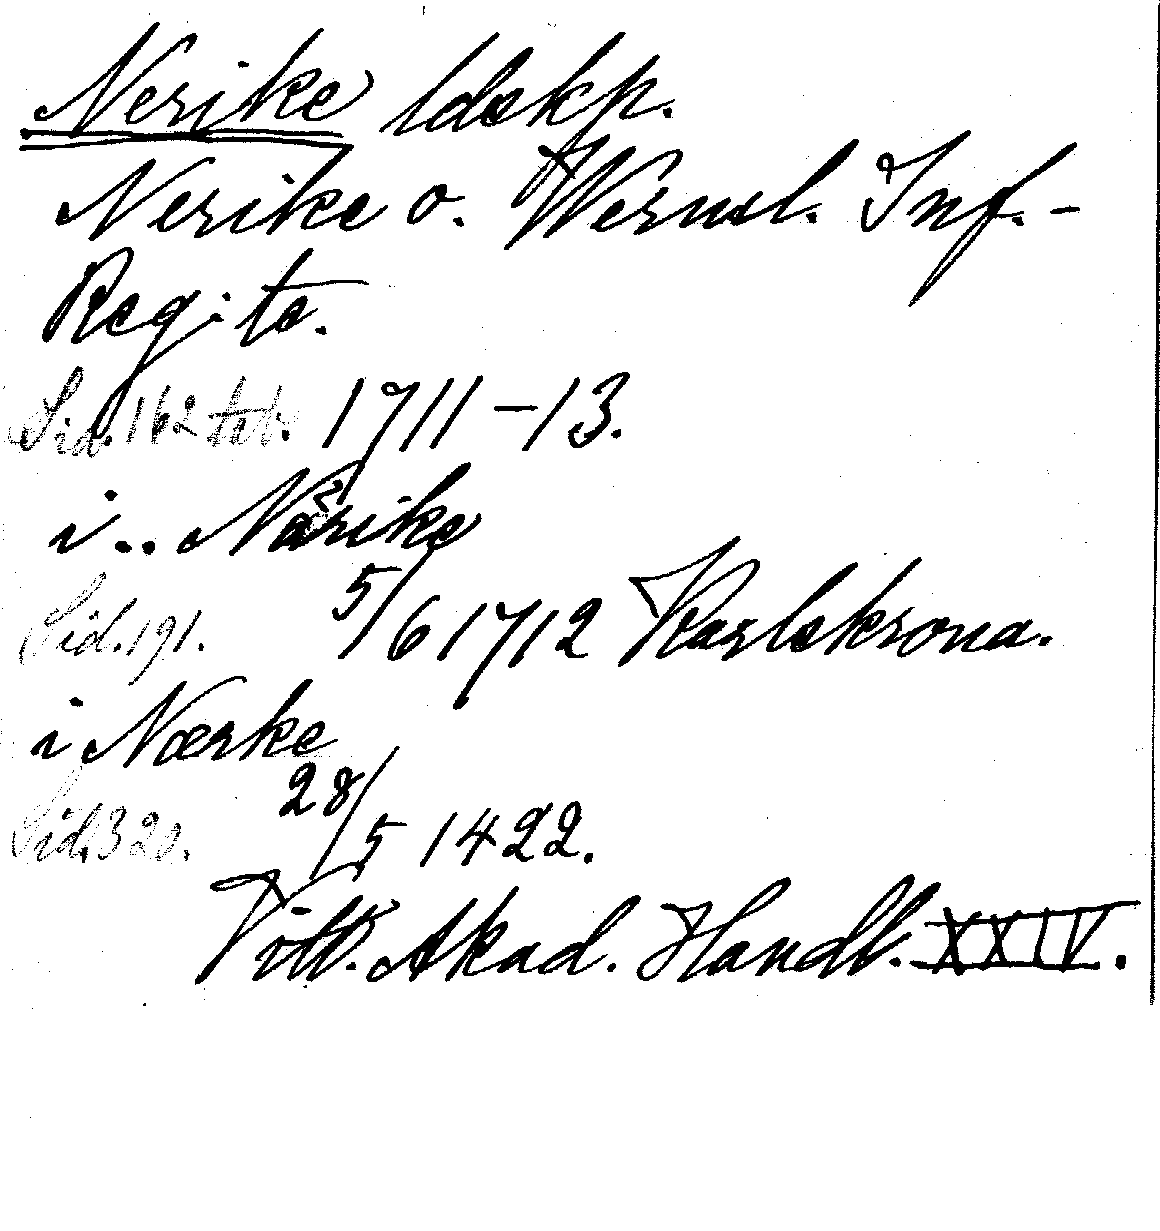 Nerike ldskp.
Nerike o. Wermsl. Inf.-
Reg:te.
Sid. 162 tab. 1711-13.
i.. Närike
Sid. 191. 5/6 1712 Karlskrona.
i Nærke
Sid. 320. 28/5 1422.
Vitt. Akad. Handl. XXIV.